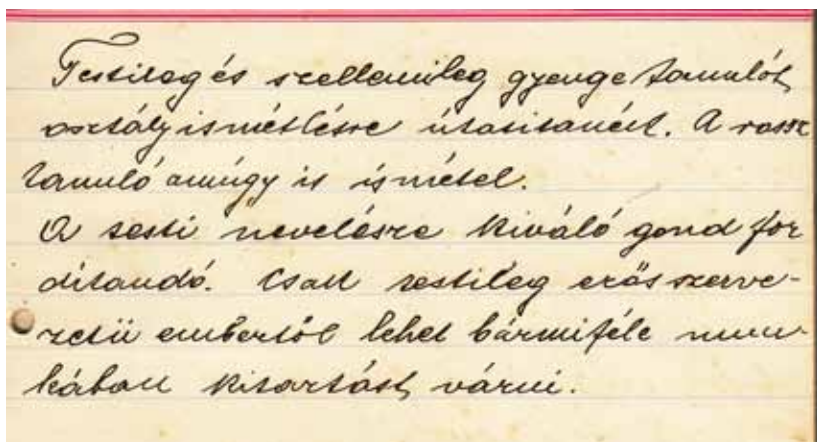 Testileg és szellemileg gyenge tanulót
osztályismétlésre útasitanék. A rossz
tanuló amúgy is ismétel.
A testi nevelésre kiváló gond for
ditandó. Csak testileg erős szerve-
zetü embertől lehet bármiféle mun-
kában kitartást várni.